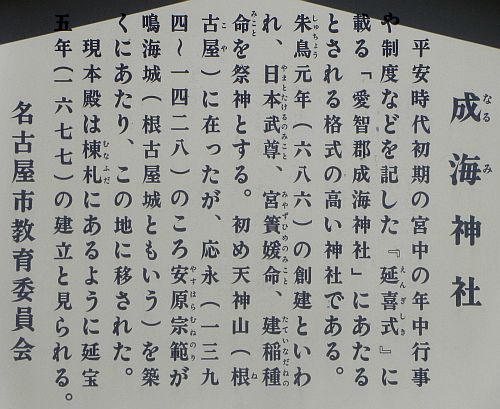 成海神社
平安時代初期の宮中の年中行事
や制度などを記した『延喜式』に
載る「愛智郡成海神社」にあたる
とされる格式の高い神社である。
朱鳥元年（六八六）の創建といわ
れ、日本武尊、宮簀媛命、建稲種
命を祭神とする。初め天神山（根
古屋）に在ったが、応永（一三九
四～一四二八）のころ安原宗範が
鳴海城（根古屋城ともいう）を築
くにあたり、この地に移された。
現本殿は棟札にあるように延宝
五年（一六七七）の建立と見られる。
名古屋市教育委員会